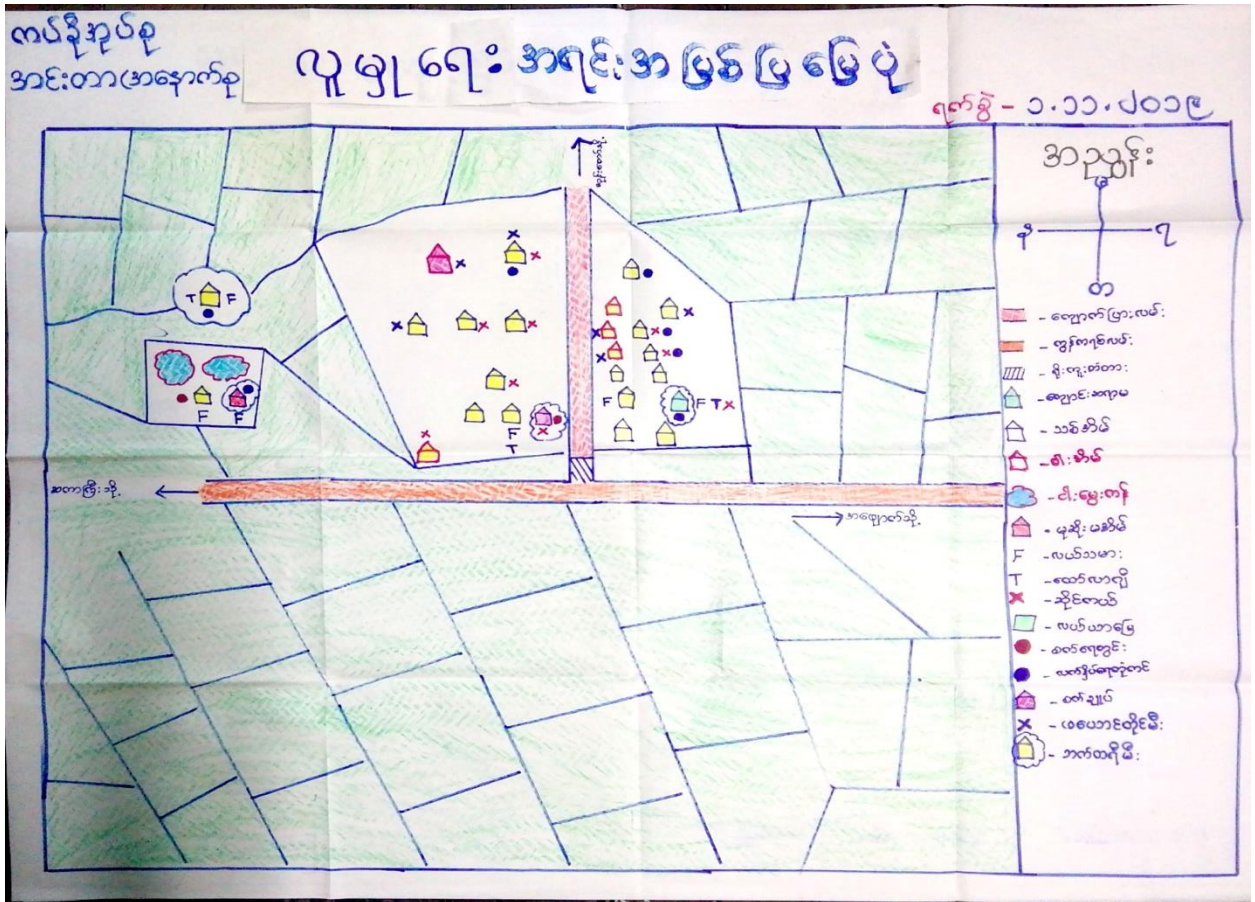 ကပ်နိုအုပ်စု
အင်းတာ(အနောက်စု
လူမှုရေး အရင်းအမြစ်ပြမြေပုံ
ရက်စွဲ - ၁.၁၁.၂၀၁၉
အညွှန်း
မ
န
ရ
တ
- ကျောက်ပြားလမ်း
- ကွန်ကရစ်လမ်း
- ရိုးကူးတံတား
- ကျောင်းဆရာမ
- သစ်အိမ်
- ဝါးအိမ်
- ငါးမွေးကန်
- မုဆိုးမအိမ်
F - လယ်သမား
T - ထော်လာဂျီ
x - ဆိုင်ကယ်
- လယ်ယာမြေ
- စက်ရေတွင်း
- လက်နှိပ်ရေတုံကင်
- စက်ချုပ်
x - ဖယောင်းတိုင်မီး
- ဘက်ထရီမီး
T F
x
x x
x x x x
x
x
F
T
x
x
F F
x
x x
x x
F F T x
ဆကာကြီးသို့
အဖျောက်သို့